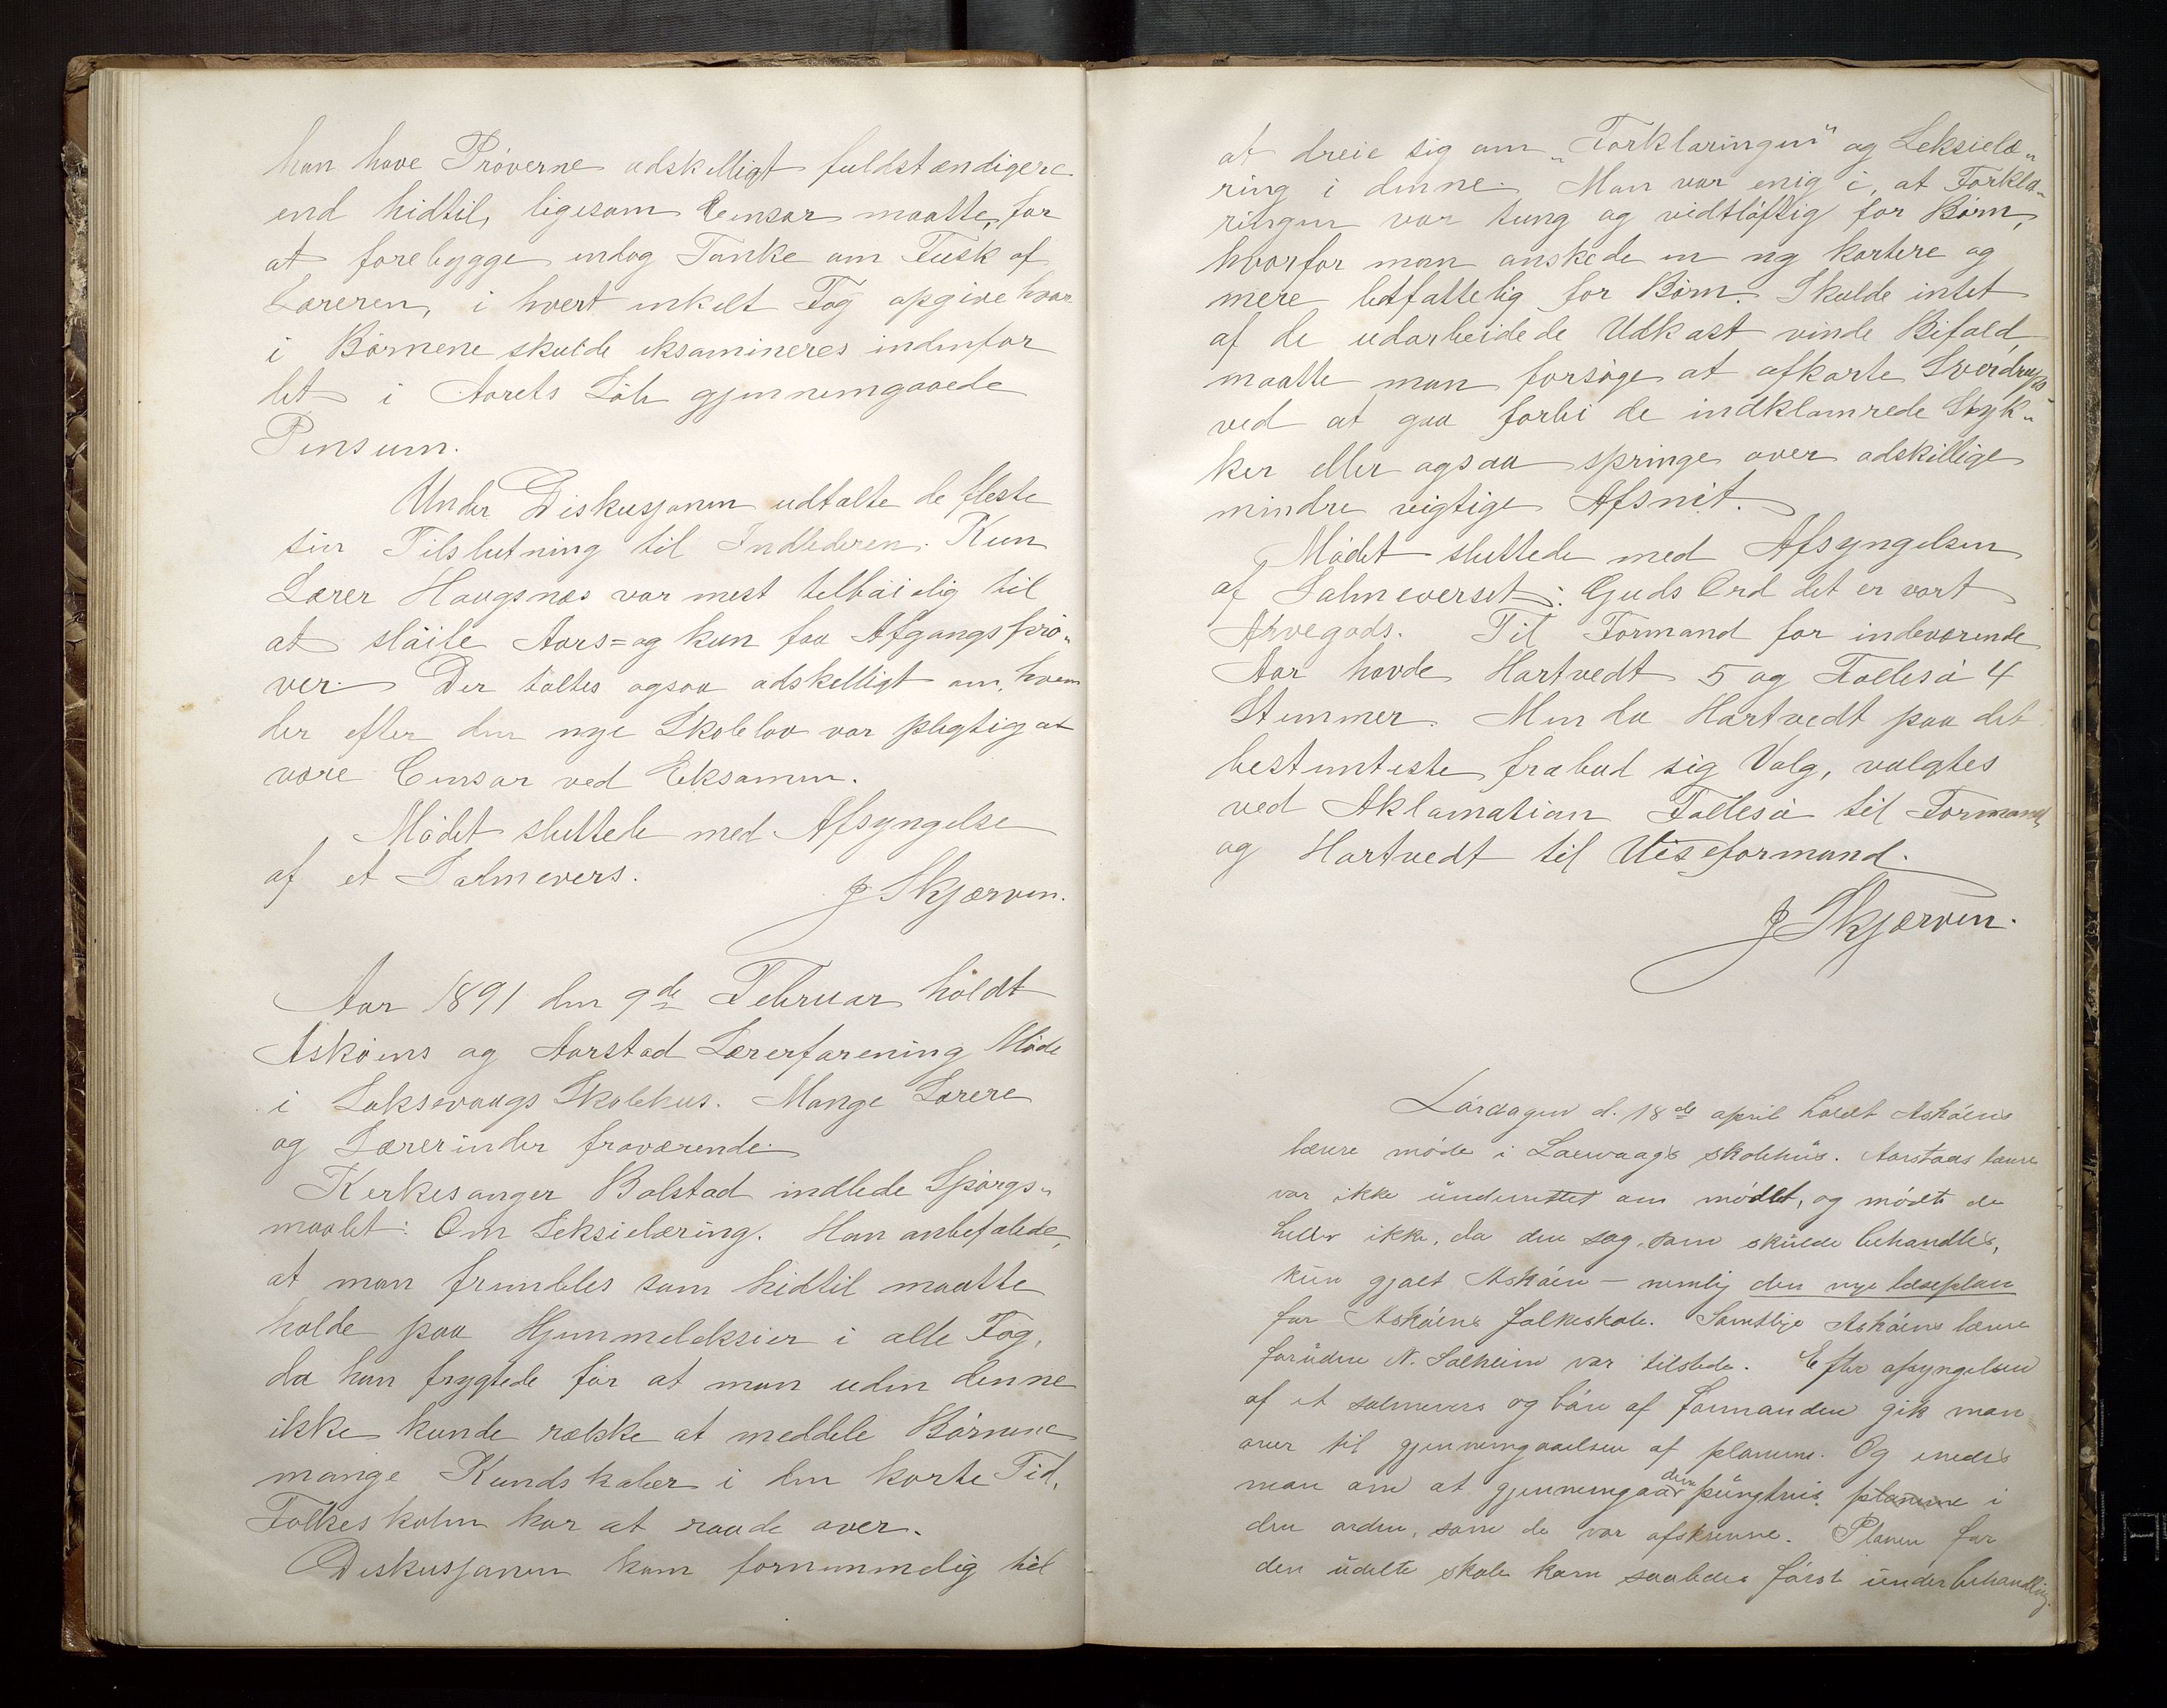 han have Prøverne adskilligt fuldstændigere
end hidtil, ligesom Censor maatte, for
at forebygge endog Tanke om Fusk af
Læreren, i hvert enkelt Fag opgive hvor
i Børnene skulde eksamineres indenfor
det i Aarets Løb gjennemgaaede
Pensum.
Under Diskusjonen udtalte de fleste
sin Tilslutning til Indlederen. Kun
Lærer Haugsnæs var mest tilbøielig til
at sløife Aars= og kun faa Afgangsprø„
ver. Der taltes ogsaa adskilligt om, hvem
der efter den nye Skolelov var pligtig at
være Censor ved Eksamen.
Mødet sluttede med Afsyngelse
af et Salmevers.
J Skjærven.
Aar 1891 den 9de Februar holdt
Askøens og Aarstad Lærerforening Møde
i Laksevaags Skolehus. Mange Lærere
og Lærerinder fraværende.
Kirkesanger Bolstad indlede Spørgs„
maalet: Om Leksielæring. Han anbefalede,
at man fremdeles som hidtil maatte
holde paa Hjemmeleksier i alle Fag,
da han frygtede for at man uden denne
ikke kunde række at meddele Børnene
mange Kundskaber i den korte Tid,
Folkeskolen har at raade over.
Diskusjonen kom fornemmelig til
at dreie sig om „Forklaringen" og Leksielæ„
ring i denne. Man var enig i, at Forkla„
ringen var tung og vidtløftig for Børn,
hvorfor man ønskede en ny kortere og
mere letfattelig for Børn. Skulde intet
af de udarbeidede Udkast vinde Bifald,
maatte man forsøge at afkorte Sverdrups
ved at gaa forbi de indklamrede Styk„
ker eller ogsaa springe over adskillige
mindre vigtige Afsnit.
Mødet sluttede med Afsyngelsen
af Salmeverset: Guds Ord det er vort
Arvegods. Til Formand for indeværende
Aar havde Hartvedt 5 og Follesø 4
Stemmer. Men da Hartvedt paa det
bestemteste frabad sig Valg, valgtes
ved Aklamation Follesø til Formand,
og Hartvedt til Viseformand.
J Skjærven.
Lørdagen d. 18de april holdt Askøens
lærere møde i Laxevaags skolehus. Aarstads lærere
var ikke underrettet om mødet, og mødte de
heller ikke, da den sag, som skulde behandles,
kun gjalt Askøen – nemlig den nye læseplan
for Askøens folkeskole. Samtlige Askøens lærere
foruden N. Solheim var tilstede. Efter afsyngelsen
af et salmevers og bøn af formanden gik man
over til gjennemgaaelsen af planene. Og enedes
man om at gjennemgaa dem pungtvis planene i
den orden, som de var afskrevne. Planen for
den udelte skole kom saaledes først under behandling.